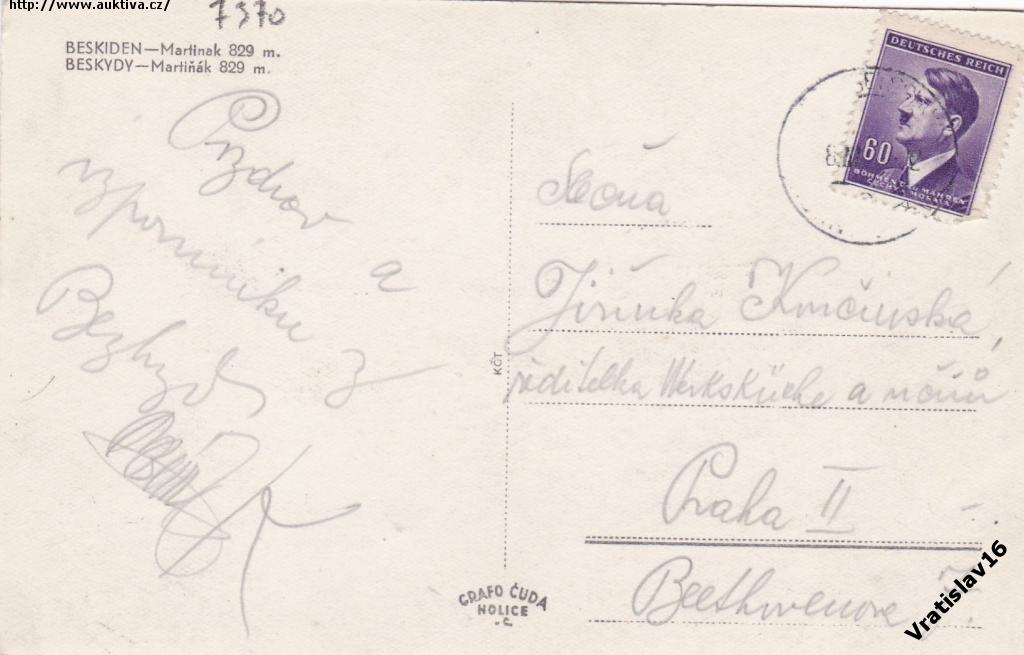 http://www.auktiva.cz/
7370
BESKIDEN—Martinak 829 m.
BESKYDY—Martiňák 829 m.
Pozdrav
a
vzpomínku
z
Bezkyd
DEUTSCHES REICH
60
BÖHMEN U. MÄHREN
ČECHY A MORAVA
Jiřinka
ředitelka Werksküche a
Praha II
Beethovenova
KČT
GRAFO ČUDA
HOLICE
.Č.
Vratislav16